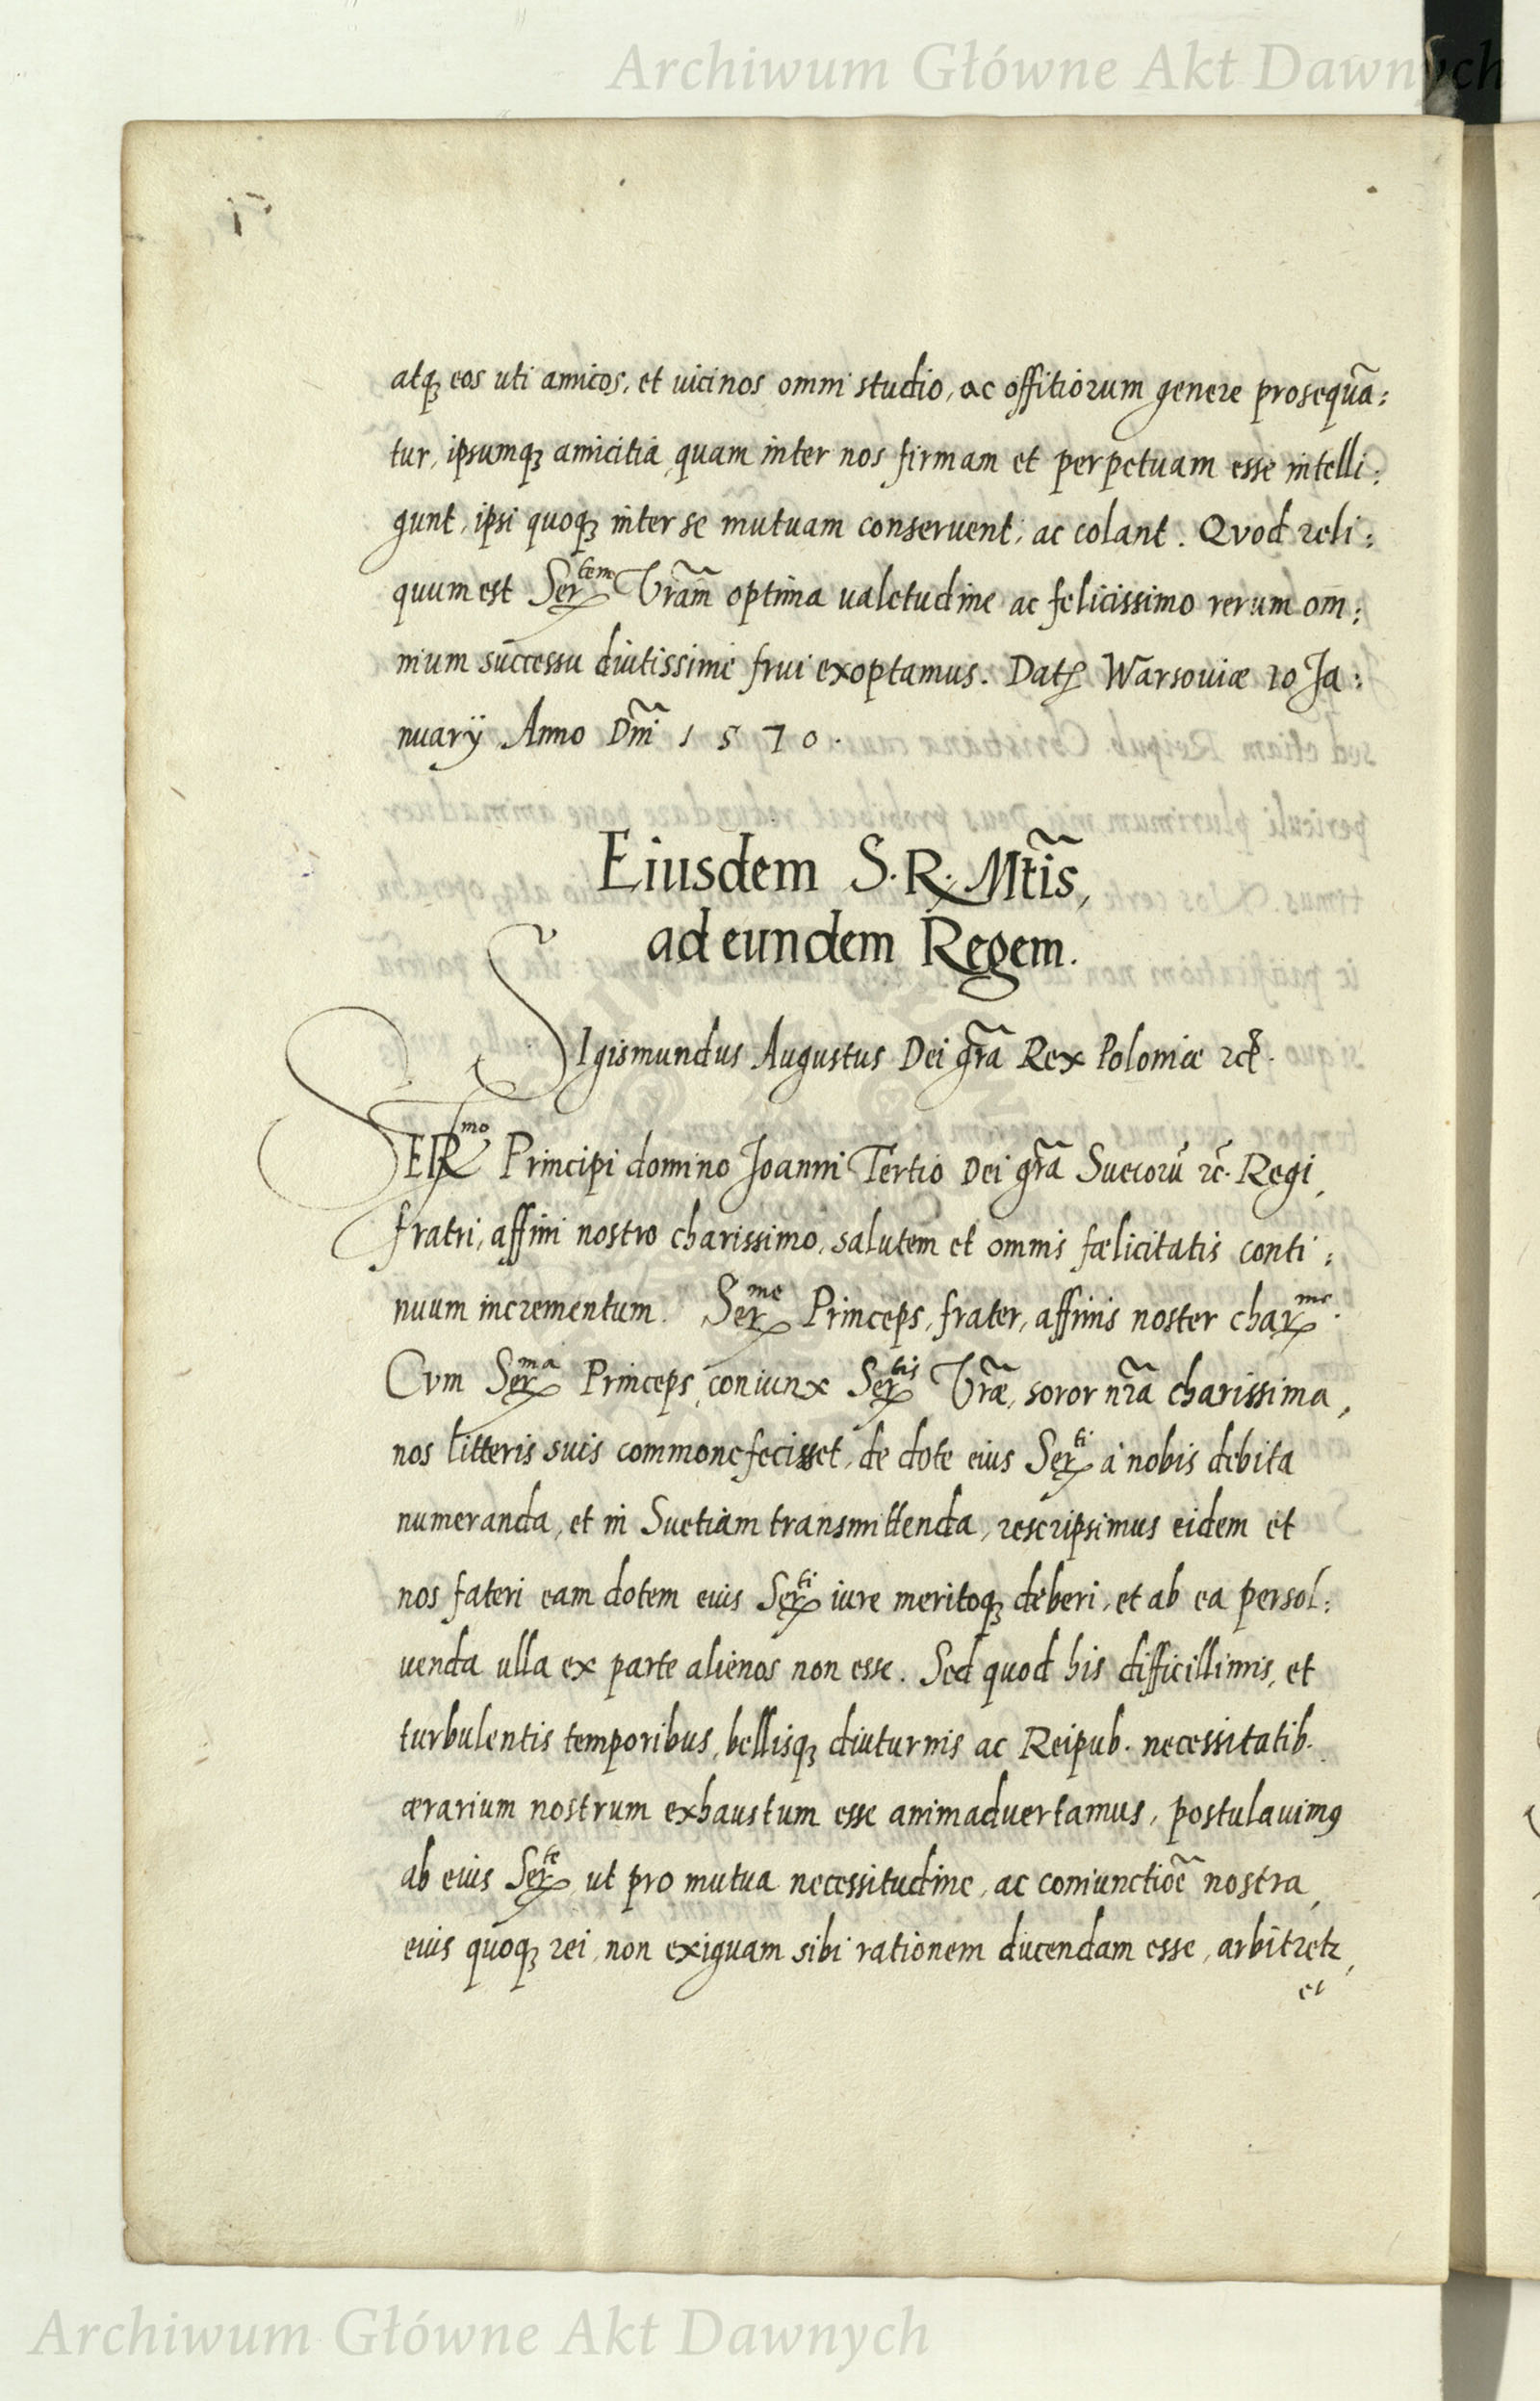 Archiwum Główne Akt Dawnych
atq; eos uti amicos, et uicinos omni studio, ac offitiorum genere prosequã:
tur, ipsumq; amicitia quam inter nos firmam et perpetuam esse intelli:
gunt, ipsi quoq; inter se mutuam conseruent, ac colant. Qvod reli:
quum est Ser^tem Vrãm optima ualetudine ac felicissimo rerum om:
nium successu diutissime frui exoptamus. Dat. Warsouiæ 10 Ja:
nuarÿ Anno Dm̃i 1570.
Eiusdem S. R. Mt̃is,
ad eundem Regem.
SIgismundus Augustus Dei grã Rex Poloniæ etc.
SER^mo Principi domino Joanni Tertio Dei grã Suecorũ etc. Regi,
fratri, affini nostro charissimo, salutem et omnis fælicitatis conti:
nuum incrementum. Ser^me Princeps, frater, affinis noster char^me.
Cvm Ser^ma Princeps, coniunx Ser^tis Vrãe, soror nrã charissima,
nos litteris suis commonefecisset, de dote eius Ser^ti à nobis debita
numeranda, et in Suetiam transmittenda, rescripsimus eidem et
nos fateri eam dotem eius Ser^ti iure meritoq; deberi, et ab ea persol:
uenda ulla ex parte alienos non esse. Sed quod his difficillimis, et
turbulentis temporibus, bellisq; diuturnis ac Reipub. necessitatib.
ærarium nostrum exhaustum esse animaduertamus, postulauimꝯ
ab eius Ser^te, ut pro mutua necessitudine, ac coniunctiõe nostra,
eius quoq; rei, non exiguam sibi rationem ducendam esse, arbitretr,
et
Archiwum Główne Akt Dawnych